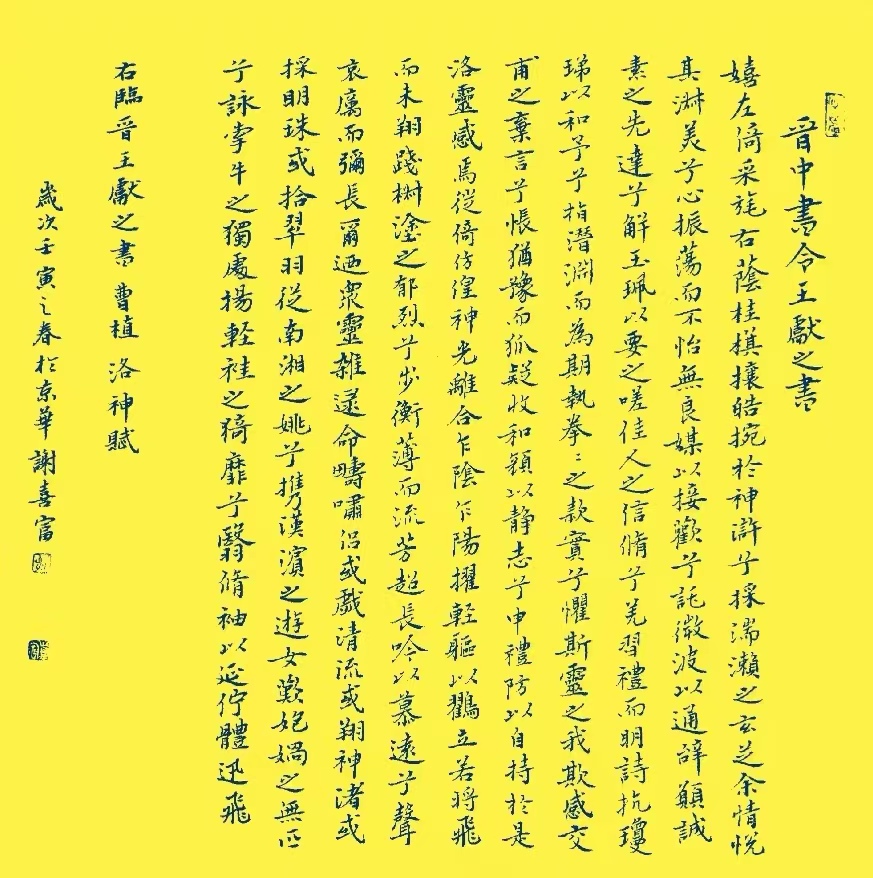 晉中書令王獻之書
嬉左倚采旄右蔭桂旗攘皓捥於神滸兮採湍瀨之玄芝余情悅
其淋美兮心振蕩而不怡無良媒以接歡兮託微波以通辭願誠
素之先達兮解玉珮以要之嗟佳人之信脩兮羌習禮而明詩抗瓊
珶以和予兮指潛淵而為期執拳〻之款實兮懼斯靈之我欺感交
甫之棄言兮悵猶豫而狐疑收和顏以静志兮申禮防以自持於是
洛靈感焉從倚仿徨神光離合乍陰乍陽擢軽軀以鶴立若將飛
而未翔踐椒塗之郁烈兮步衡薄而流芳超長吟以慕遠兮聲
哀厲而彌長爾迺衆靈雜遝命疇嘯侣或戲清流或翔神渚或
採明珠或拾翠羽從南湘之姚兮攜漢濱之遊女歎匏媧之無匹
兮詠牽牛之獨處揚軽袿之猗靡兮翳脩袖以延佇體迅飛
右臨晉王獻之書曹植洛神賦
歲次壬寅之春於京華謝喜富